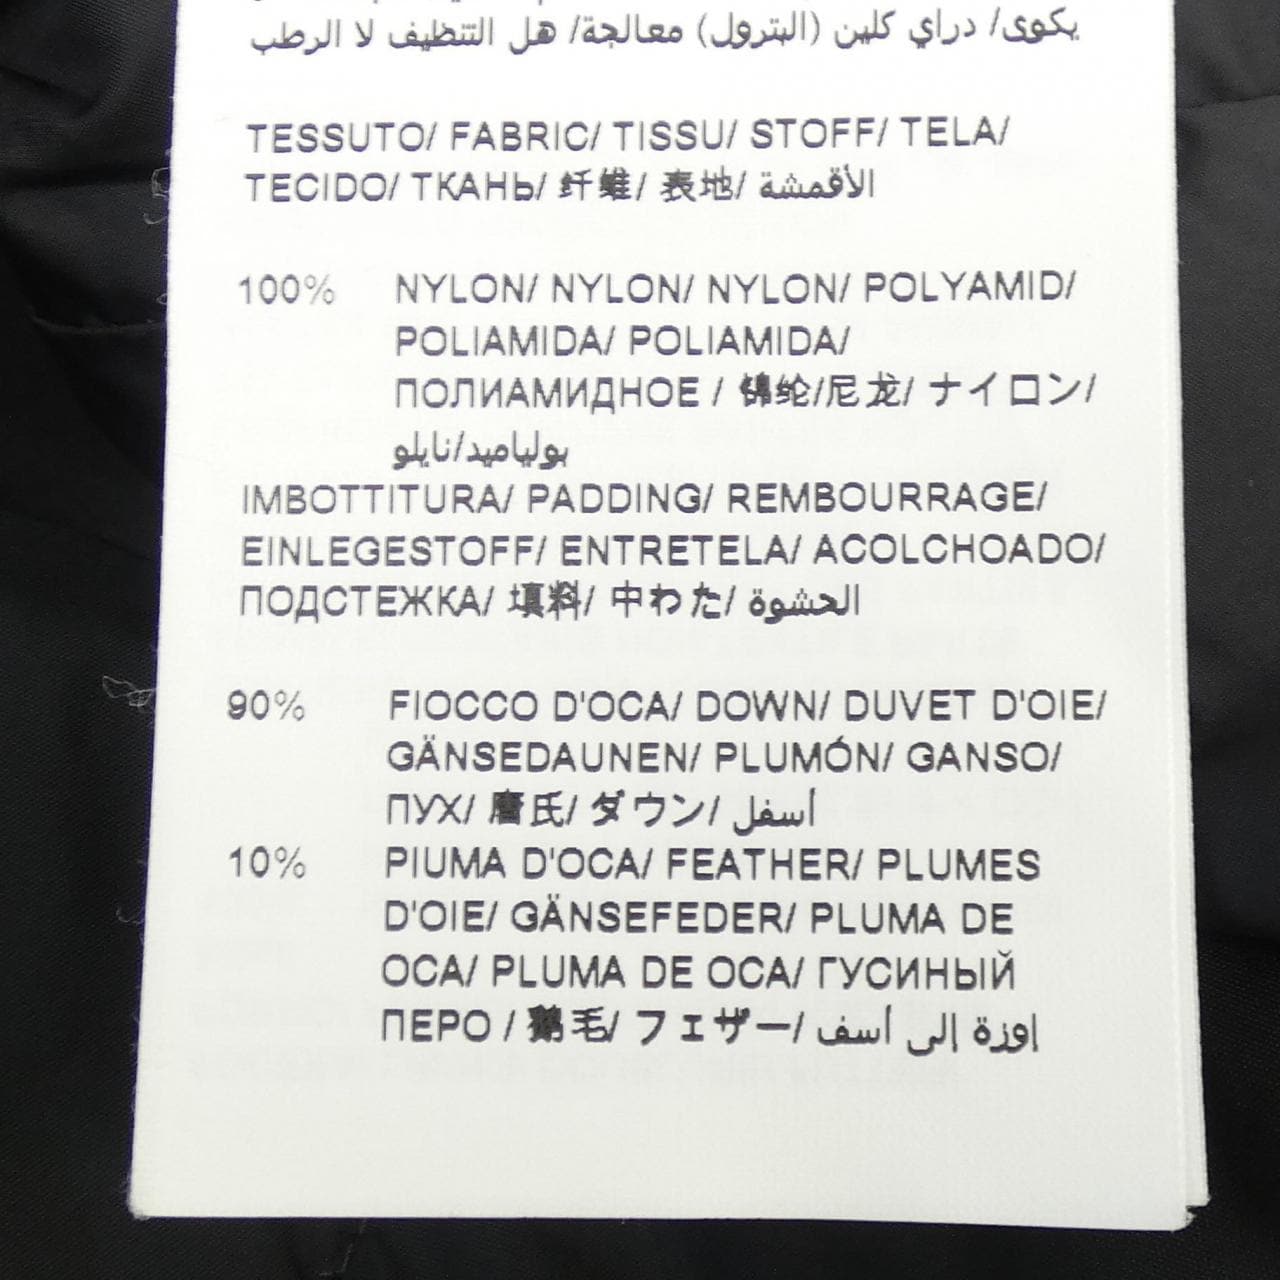 يكوى/ دراي كلين (البترول) معالجة/ هل التنظيف لا الرطب
TESSUTO/ FABRIC/ TISSU/ STOFF/ TELA/
TECIDO/ ТКАНЬ/ 纤维/ 表地/ الأقمشة
100% NYLON/ NYLON/ NYLON/ POLYAMID/
POLIAMIDA/ POLIAMIDA/
ПОЛИАМИДНОЕ / 锦纶/尼龙/ ナイロン/
بولياميد/نايلو
IMBOTTITURA/ PADDING/ REMBOURRAGE/
EINLEGESTOFF/ ENTRETELA/ ACOLCHOADO/
ПОДСТЕЖКА/ 填料/ 中わた/ الحشوة
90% FIOCCO D'OCA/ DOWN/ DUVET D'OIE/
GÄNSEDAUNEN/ PLUMÓN/ GANSO/
ПУХ/ 唐氏/ ダウン/ أسفل
10% PIUMA D'OCA/ FEATHER/ PLUMES
D'OIE/ GÄNSEFEDER/ PLUMA DE
OCA/ PLUMA DE OCA/ ГУСИНЫЙ
ПЕРО / 鹅毛/ フェザー/ اوزة إلى أسف